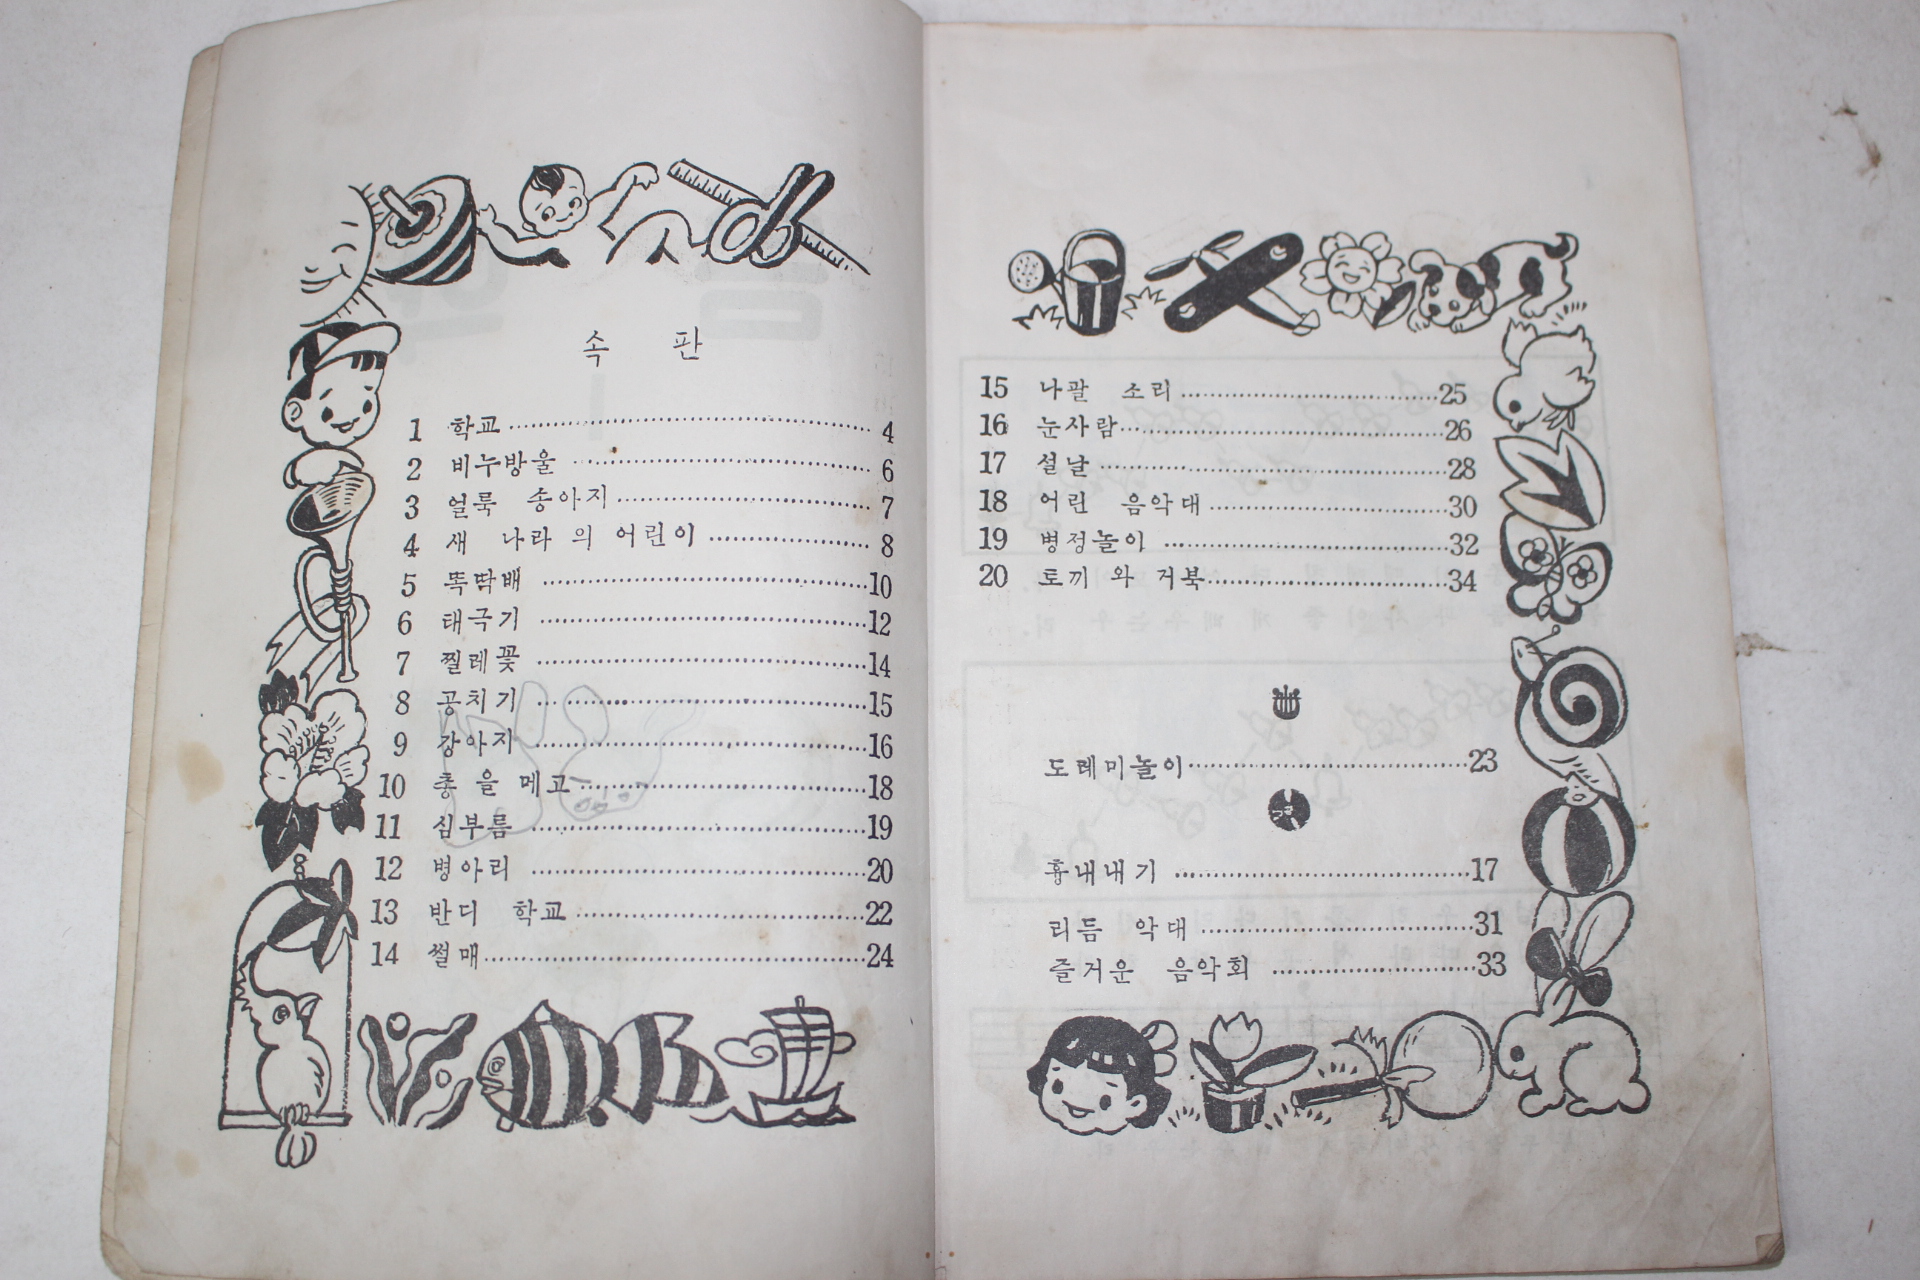 속 판
1 학교 4
2 비누방울 6
3 얼룩 송아지 7
4 새 나라 의 어린이 8
5 똑딱배 10
6 태극기 12
7 찔레꽃 14
8 공치기 15
9 강아지 16
10 총 을 메고 18
11 심부름 19
12 병아리 20
13 반디 학교 22
14 썰매 24
15 나팔 소리 25
16 눈사람 26
17 설날 28
18 어린 음악대 30
19 병정놀이 32
20 토끼 와 거북 34
도레미놀이 23
흉내내기 17
리듬 악대 31
즐거운 음악회 33